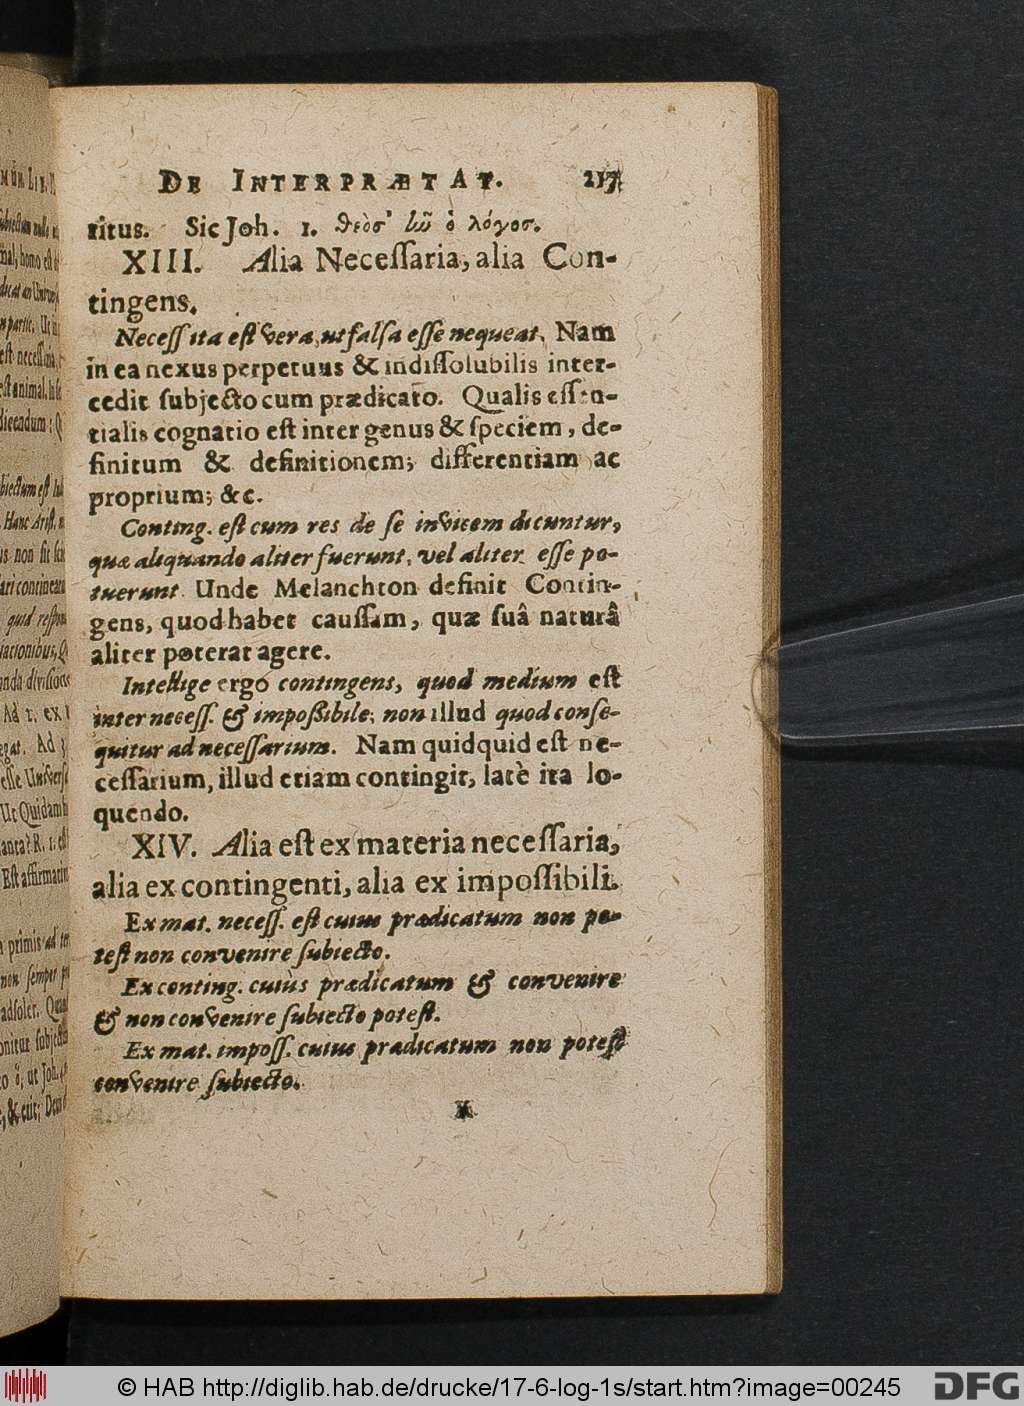 DE INTERPRÆTAT. 217
ritus. Sic Joh. 1. θεὸς ἰῶ ὁ λόγος.
XIII. Alia Necessaria, alia Con-
tingens.
Necess ita est vera, ut falsa esse nequeat. Nam
in ea nexus perpetuus & indissolubilis inter-
cedit subjecto cum prædicato. Qualis essen-
tialis cognatio est inter genus & speciem, de-
finitum & definitionem; differentiam ac
proprium; &c.
Conting. est cum res de se invicem dicuntur,
quæ aliquando aliter fuerunt, vel aliter esse po-
tuerunt. Unde Melanchton definit Contin-
gens, quod habet caussam, quæ suâ naturâ
aliter poterat agere.
Intellige ergò contingens, quod medium est
inter necess. & impossibile, non illud quod conse-
quitur ad necessarium. Nam quidquid est ne-
cessarium, illud etiam contingit, latè ita lo-
quendo.
XIV. Alia est ex materia necessaria,
alia ex contingenti, alia ex impossibili.
Ex mat. necess. est cuius prædicatum non po-
test non convenire subiecto.
Ex conting. cuiùs prædicatum & convenire
& non convenire subiecto potest.
Ex mat. imposs. cuius prædicatum non potest
convenire subiecto.
© HAB http://diglib.hab.de/drucke/17-6-log-1s/start.htm?image=00245 DFG